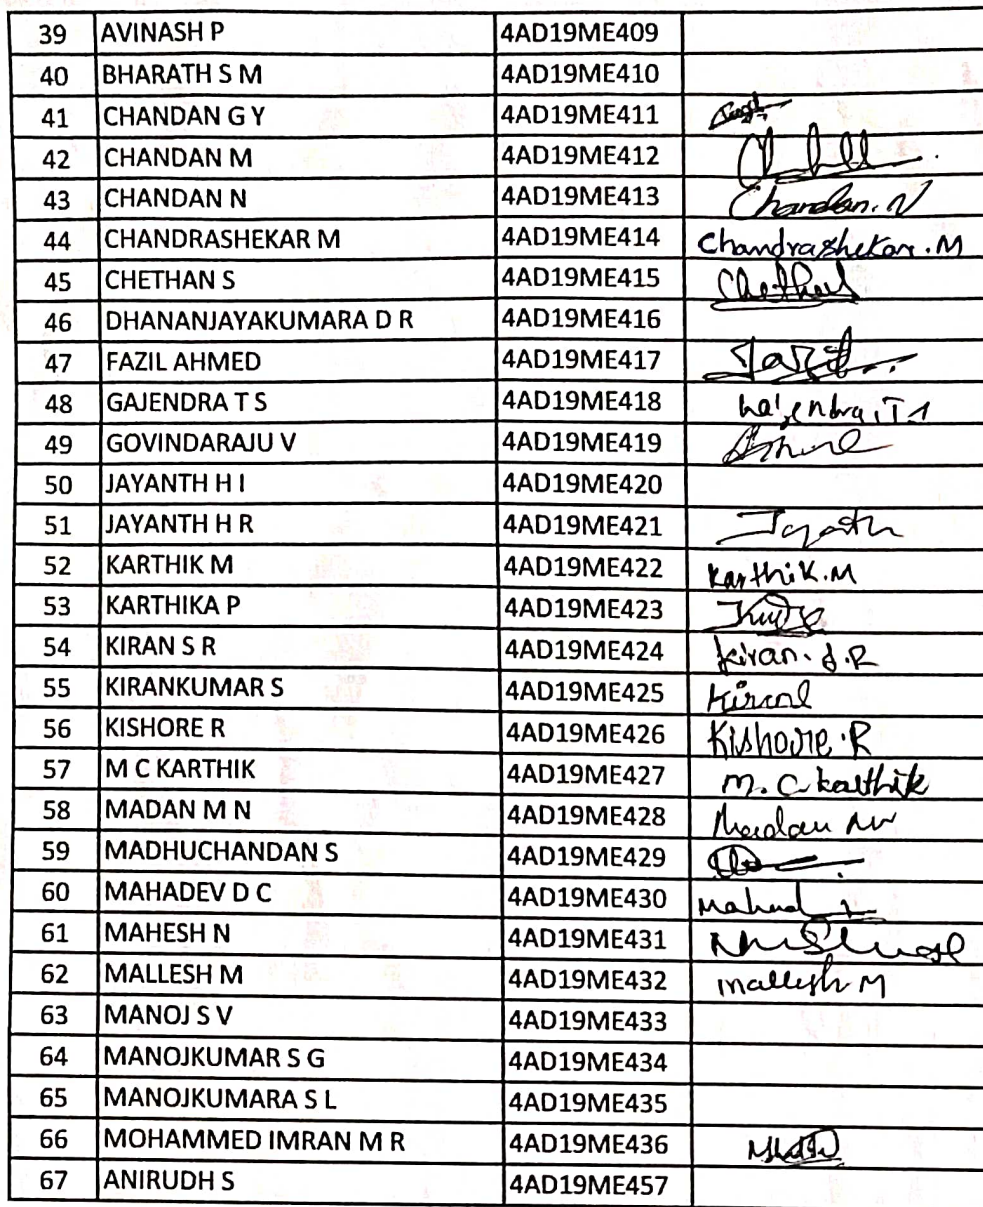 39 AVINASH P 4AD19ME409
40 BHARATH S M 4AD19ME410
41 CHANDAN G Y 4AD19ME411
42 CHANDAN M 4AD19ME412
43 CHANDAN N 4AD19ME413 Chandan. N
44 CHANDRASHEKAR M 4AD19ME414 Chandrashekar. M
45 CHETHAN S 4AD19ME415
46 DHANANJAYAKUMARA D R 4AD19ME416
47 FAZIL AHMED 4AD19ME417 Fazil
48 GAJENDRA T S 4AD19ME418
49 GOVINDARAJU V 4AD19ME419
50 JAYANTH H I 4AD19ME420
51 JAYANTH H R 4AD19ME421
52 KARTHIK M 4AD19ME422 Karthik.M
53 KARTHIKA P 4AD19ME423
54 KIRAN S R 4AD19ME424 kiran. S.R
55 KIRANKUMAR S 4AD19ME425
56 KISHORE R 4AD19ME426 Kishore.R
57 M C KARTHIK 4AD19ME427 M. C karthik
58 MADAN M N 4AD19ME428 Madan MN
59 MADHUCHANDAN S 4AD19ME429
60 MAHADEV D C 4AD19ME430
61 MAHESH N 4AD19ME431
62 MALLESH M 4AD19ME432 mallesh M
63 MANOJ S V 4AD19ME433
64 MANOJKUMAR S G 4AD19ME434
65 MANOJKUMARA S L 4AD19ME435
66 MOHAMMED IMRAN M R 4AD19ME436
67 ANIRUDH S 4AD19ME457